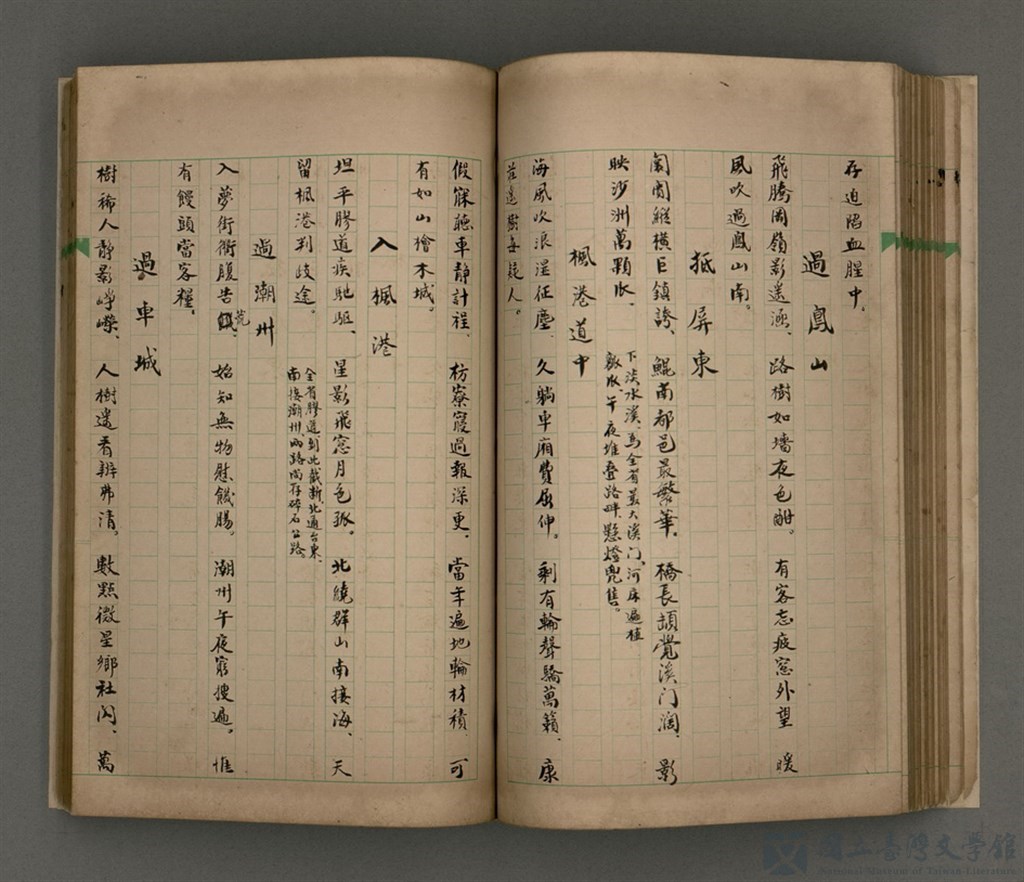 存迫陷血腥中。
過鳳山
飛騰岡嶺影遙涵、路樹如墻夜色酣。有客忘疲窓外望 暖
風吹過鳳山南。
抵屏東
闤闠縱橫巨鎮誇、鯤南都邑最繁華。橋長頡覺溪门濶、影
映沙洲萬顆瓜、
下淡水溪、為全省最大溪门、河床遍植
瓜午夜堆叠路畔、懸燈兜售。
楓港道中
海風吹浪溼征塵、久躺車廂費屈伸。剩有輪聲驕萬籟、康
莊遙樹每疑人。
假寐聽車靜計程、枋寮寢過報深更、當年遍地輪材積、可
有如山檜木城。
入楓港
坦平膠道疾馳駆、星影飛窓月色孤。北繞群山南接海、天
留楓港判歧途。
全省膠道到此截断、北通台東、
南接潮州、兩路尚存碎石公路。
過潮州
入夢街衢腹告荒、始知無物慰饑腸。潮州午夜窮搜遍。惟
有饅頭當客糧。
過車城
樹稀人靜影崢嶸、人樹遙看辨弗清。數點微星鄉社閃、萬
國立臺灣文學館
National Museum of Taiwan Literature